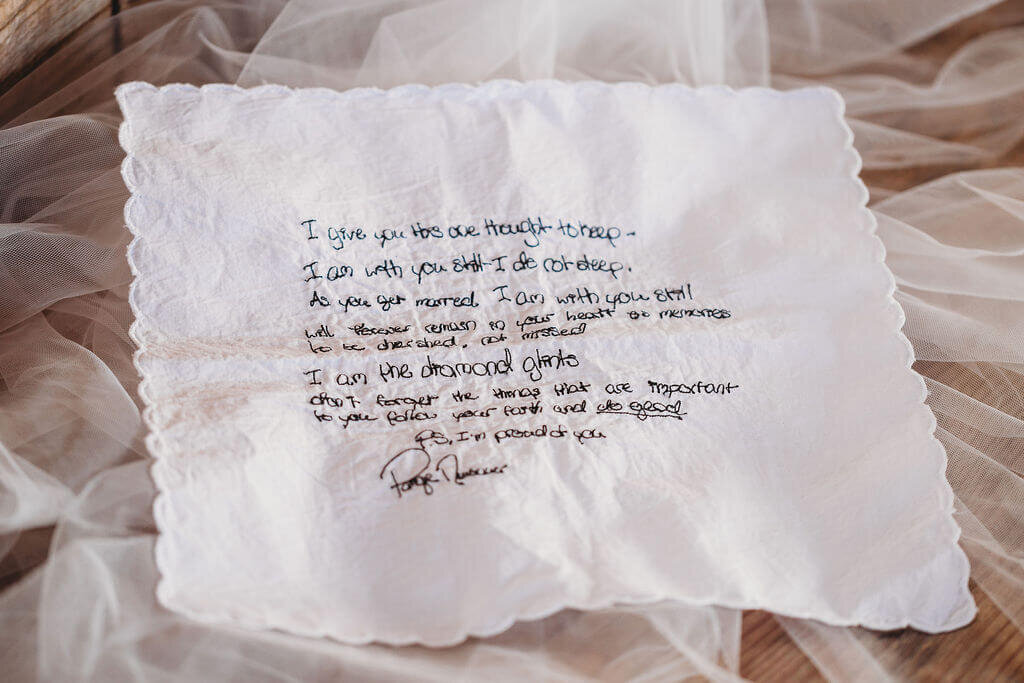 I give you this one thought to keep -
I am with you still - I do not sleep.
As you get married, I am with you still
will forever remain in your heart as memories
to be cherished, not missed
I am the diamond glints
don't forget the things that are important
to you follow your faith and do good.
P.S, I'm proud of you
Paige